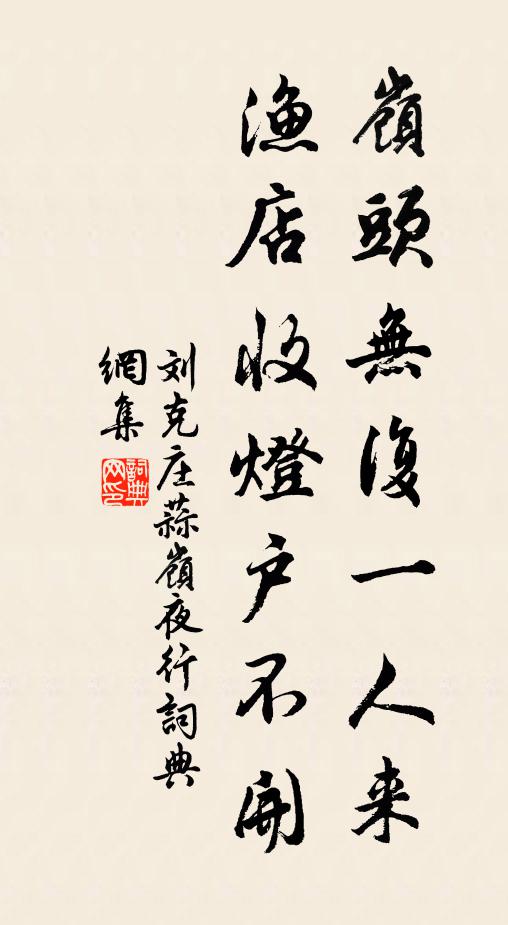 嶺頭無復一人来
漁店收燈户不開
刘克庄蒜嶺夜行詞典
網集
詞典网印